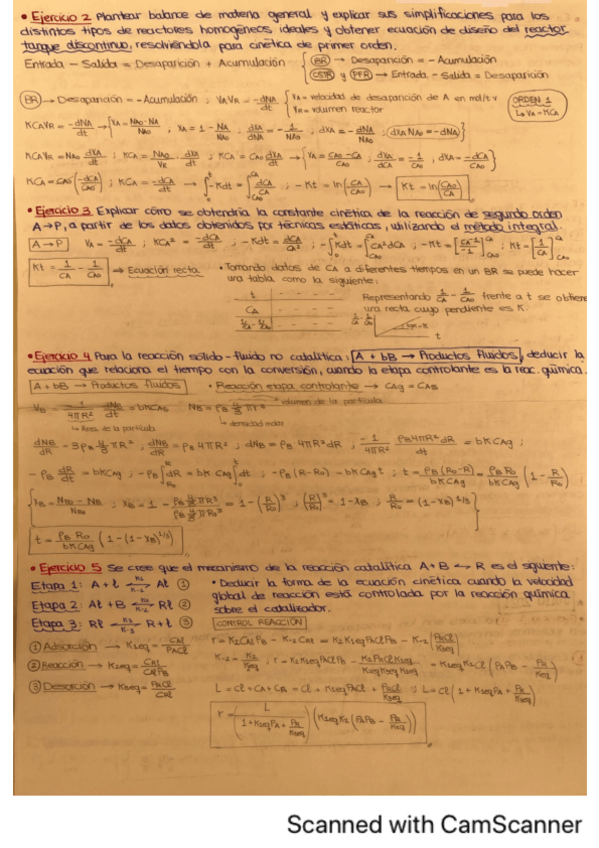 • Ejercicio 2 Plantear balance de materia general y explicar sus simplificaciones para los
distintos tipos de reactores homogéneos ideales y obtener ecuación de diseño del reactor
tanque discontinuo, resolviéndola para cinética de primer orden.
Entrada - Salida = Desaparición + Acumulación { BR → Desaparición = - Acumulación
CSTR y PFR → Entrada - Salida = Desaparición
BR → Desaparición = - Acumulación ; VAVR = -dNA/dt { VA = velocidad de desaparición de A en mol/t·v
VR = volumen reactor
ORDEN 1
↳ VA = KCA
KCAVR = -dNA/dt → { XA = NA0-NA/NA0 ; XA = 1 - NA/NA0 ; dXA/dNA = -1/NA0 ; dXA = -dNA/NA0 ; dXA NA0 = -dNA }
KCAVR = NA0 dXA/dt ; KCA = NA0/VR · dXA/dt ; KCA = CA0 dXA/dt → { XA = CA0-CA/CA0 ; dXA/dCA = -1/CA0 ; dXA = -dCA/CA0 }
KCA = CA0 (-dCA/CA0)/dt ; KCA = -dCA/dt → ∫-Kdt = ∫dCA/CA ; -Kt = ln(CA/CA0) → Kt = ln(CA0/CA)
• Ejercicio 3 Explicar cómo se obtendría la constante cinética de la reacción de segundo orden
A→P, a partir de los datos obtenidos por técnicas estáticas, utilizando el método integral.
A → P VA = -dCA/dt ; KCA² = -dCA/dt ; -Kdt = dCA/CA² ; -∫Kdt = ∫CA⁻²dCA ; -Kt = [CA⁻¹/-1] ; Kt = [1/CA]
Kt = 1/CA - 1/CA0 → Ecuación recta. • Tomando datos de CA a diferentes tiempos en un BR se puede hacer
una tabla como la siguiente:
t
CA
1/CA - 1/CA0
Representando 1/CA - 1/CA0 frente a t se obtiene
una recta cuya pendiente es K.
1/CA - 1/CA0
t
• Ejercicio 4 Para la reacción sólido-fluido no catalítica: A + bB → Productos Fluidos, deducir la
ecuación que relaciona el tiempo con la conversión, cuando la etapa controlante es la reac. química.
A + bB → Productos fluidos • Reacción etapa controlante → CAg = CAS
VB = -1/4πR² dNB/dt = bKCAg NB = ρB 4/3 πR³ → volumen de la partícula
↳ Área de la partícula ↳ densidad molar
dNB/dR = 3ρB 4/3 πR² ; dNB/dR = ρB 4πR² ; dNB = ρB 4πR²dR ; -1/4πR² ρB4πR²dR/dt = bKCAg ;
-ρB dR/dt = bKCAg ; -ρB∫dR = bK CAg∫dt ; -ρB (R-R0) = bKCAg t ; t = ρB (R0-R)/bKCAg = ρB R0/bKCAg (1 - R/R0)
{ XB = NB0 - NB/NB0 ; XB = 1 - ρB 4/3 πR³/ρB 4/3 πR0³ = 1 - (R/R0)³ ; (R/R0)³ = 1-XB ; R/R0 = (1-XB)^1/3 }
t = ρB R0/bKCAg (1 - (1-XB)^1/3)
• Ejercicio 5 Se cree que el mecanismo de la reacción catalítica A+B ↔ R es el siguiente:
Etapa 1: A + l ⇌ Al ① • Deducir la forma de la ecuación cinética cuando la velocidad
Etapa 2: Al + B ⇌ Rl ② global de reacción está controlada por la reacción química
Etapa 3: Rl ⇌ R + l ③ sobre el catalizador.
CONTROL REACCIÓN
① Adsorción → K1eq = CAl/PACl r = K2CAlPB - K-2 CRl = K2K1eqPAClPB - K-2 (PRCl/K3eq)
② Reacción → K2eq = CRl/CAlPB
③ Desorción → K3eq = PRCl/CRl L = Cl + CA + CR = Cl + K1eqPACl + PRCl/K3eq ; L = Cl (1 + K1eqPA + PR/K3eq)
r = L/(1+K1eqPA + PR/K3eq) (K1eqK2 (PAPB - PR/Keq))
Scanned with CamScanner